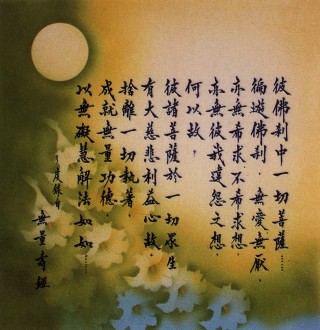 彼佛刹中一切菩薩……
徧遊佛刹，無愛無厭，
亦無希求不希求想，
亦無彼我違怨之想，
何以故，
彼諸菩薩於一切眾生
有大慈悲利益心故，
捨離一切執著，
成就無量功德，
以無礙慧解法如如……
無量壽經